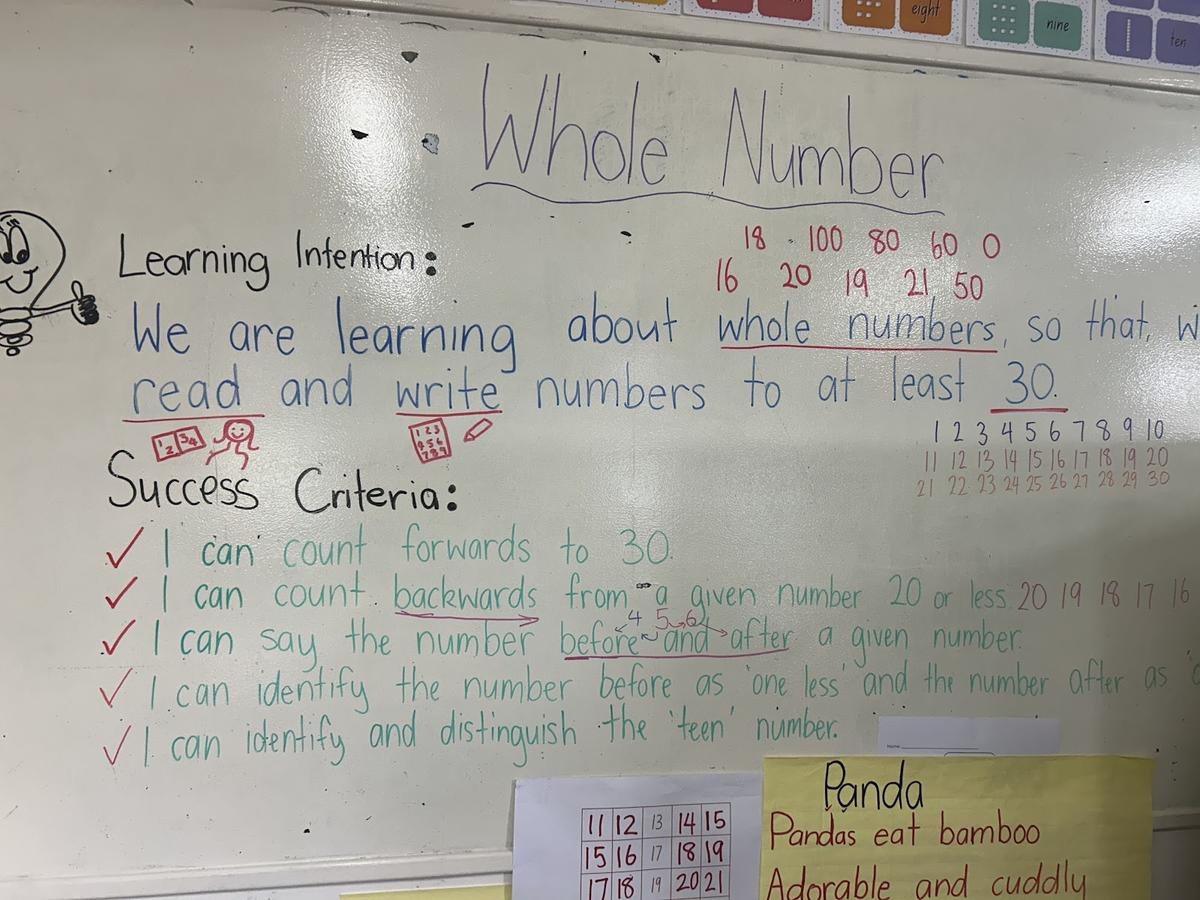 eight
nine
ten
Whole Number
Learning Intention:
18 100 80 60 0
16 20 19 21 50
We are learning about whole numbers, so that, w
read and write numbers to at least 30.
1 2 3 4
1 2 3
4 5 6
7 8 9
1 2 3 4 5 6 7 8 9 10
11 12 13 14 15 16 17 18 19 20
21 22 23 24 25 26 27 28 29 30
Success Criteria:
✓ I can count forwards to 30.
✓ I can count backwards from a given number 20 or less. 20 19 18 17 16
4 5 6
✓ I can say the number before and after a given number.
✓ I can identify the number before as 'one less' and the number after as
✓ I can identify and distinguish the 'teen' number.
11 12 13 14 15
15 16 17 18 19
17 18 19 20 21
Panda
Pandas eat bamboo
Adorable and cuddly